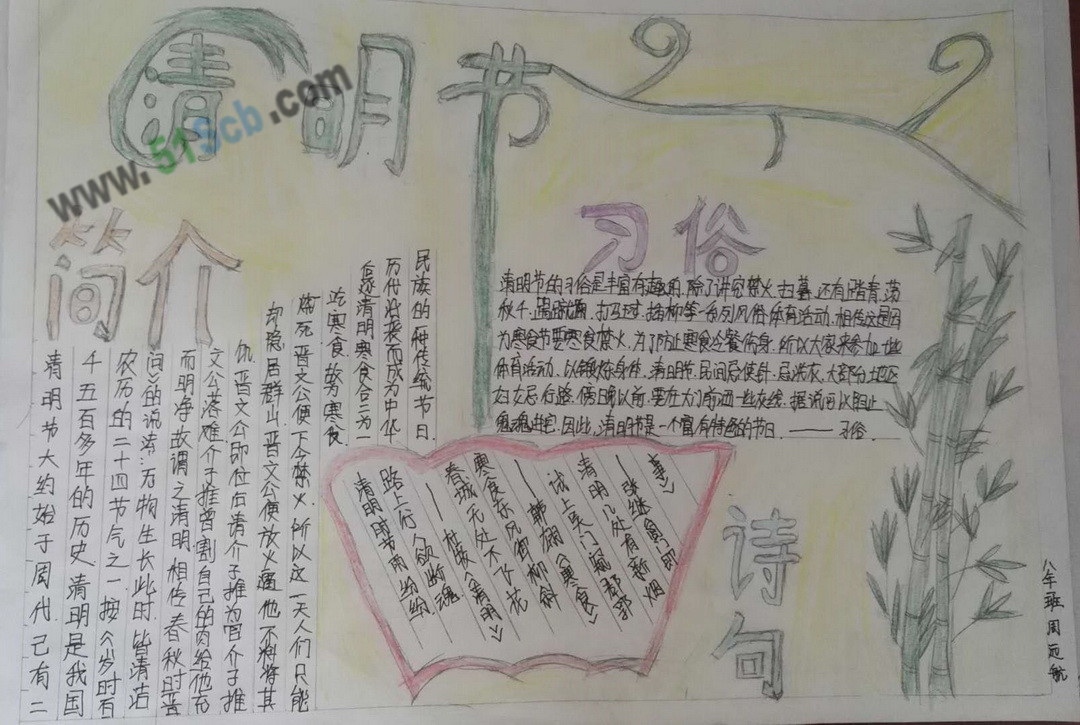 清明节
简介
清明节大约始于周代已有二
千五百多年的历史 清明是我国
农历的二十四节气之一 按《岁时百
问》的说法:万物生长此时,皆清洁
而明净故谓之清明.相传春秋时晋
文公落难介子推曾割自己的肉给他充
饥 晋文公即位后请介子推为官 介子推
却隐居群山 晋文公便放火逼他 不料将其
烧死 晋文公便下令禁火.所以这一天人们只能
吃寒食,故为寒食
后逐清明寒食合二为一
历代沿袭而成为中华
民族的一种传统节日.
习俗
清明节的习俗是丰富有趣的,除了讲究禁火、扫墓,还有踏青、荡
秋千、蹴鞠、打马球、插柳等一系列风俗体育活动.相传这是因
为寒食节要寒食禁火,为了防止寒食冷餐伤身,所以大家来参加一些
体育活动,以锻炼身体.清明节,民间忌使针,忌洗衣,大部分地区
妇女忌行路.傍晚以前,要在大门前洒一条灰线,据说可以阻止
鬼魂进宅.因此,清明节是一个富有特色的节日.——习俗.
诗句
清明时节雨纷纷
路上行人欲断魂
——杜牧《清明》
春城无处不飞花
寒食东风御柳斜
——韩翃《寒食》
试上吴门窥郡郭
清明几处有新烟
——张继《阊门即
事》
八年班 周
www.51scb.com